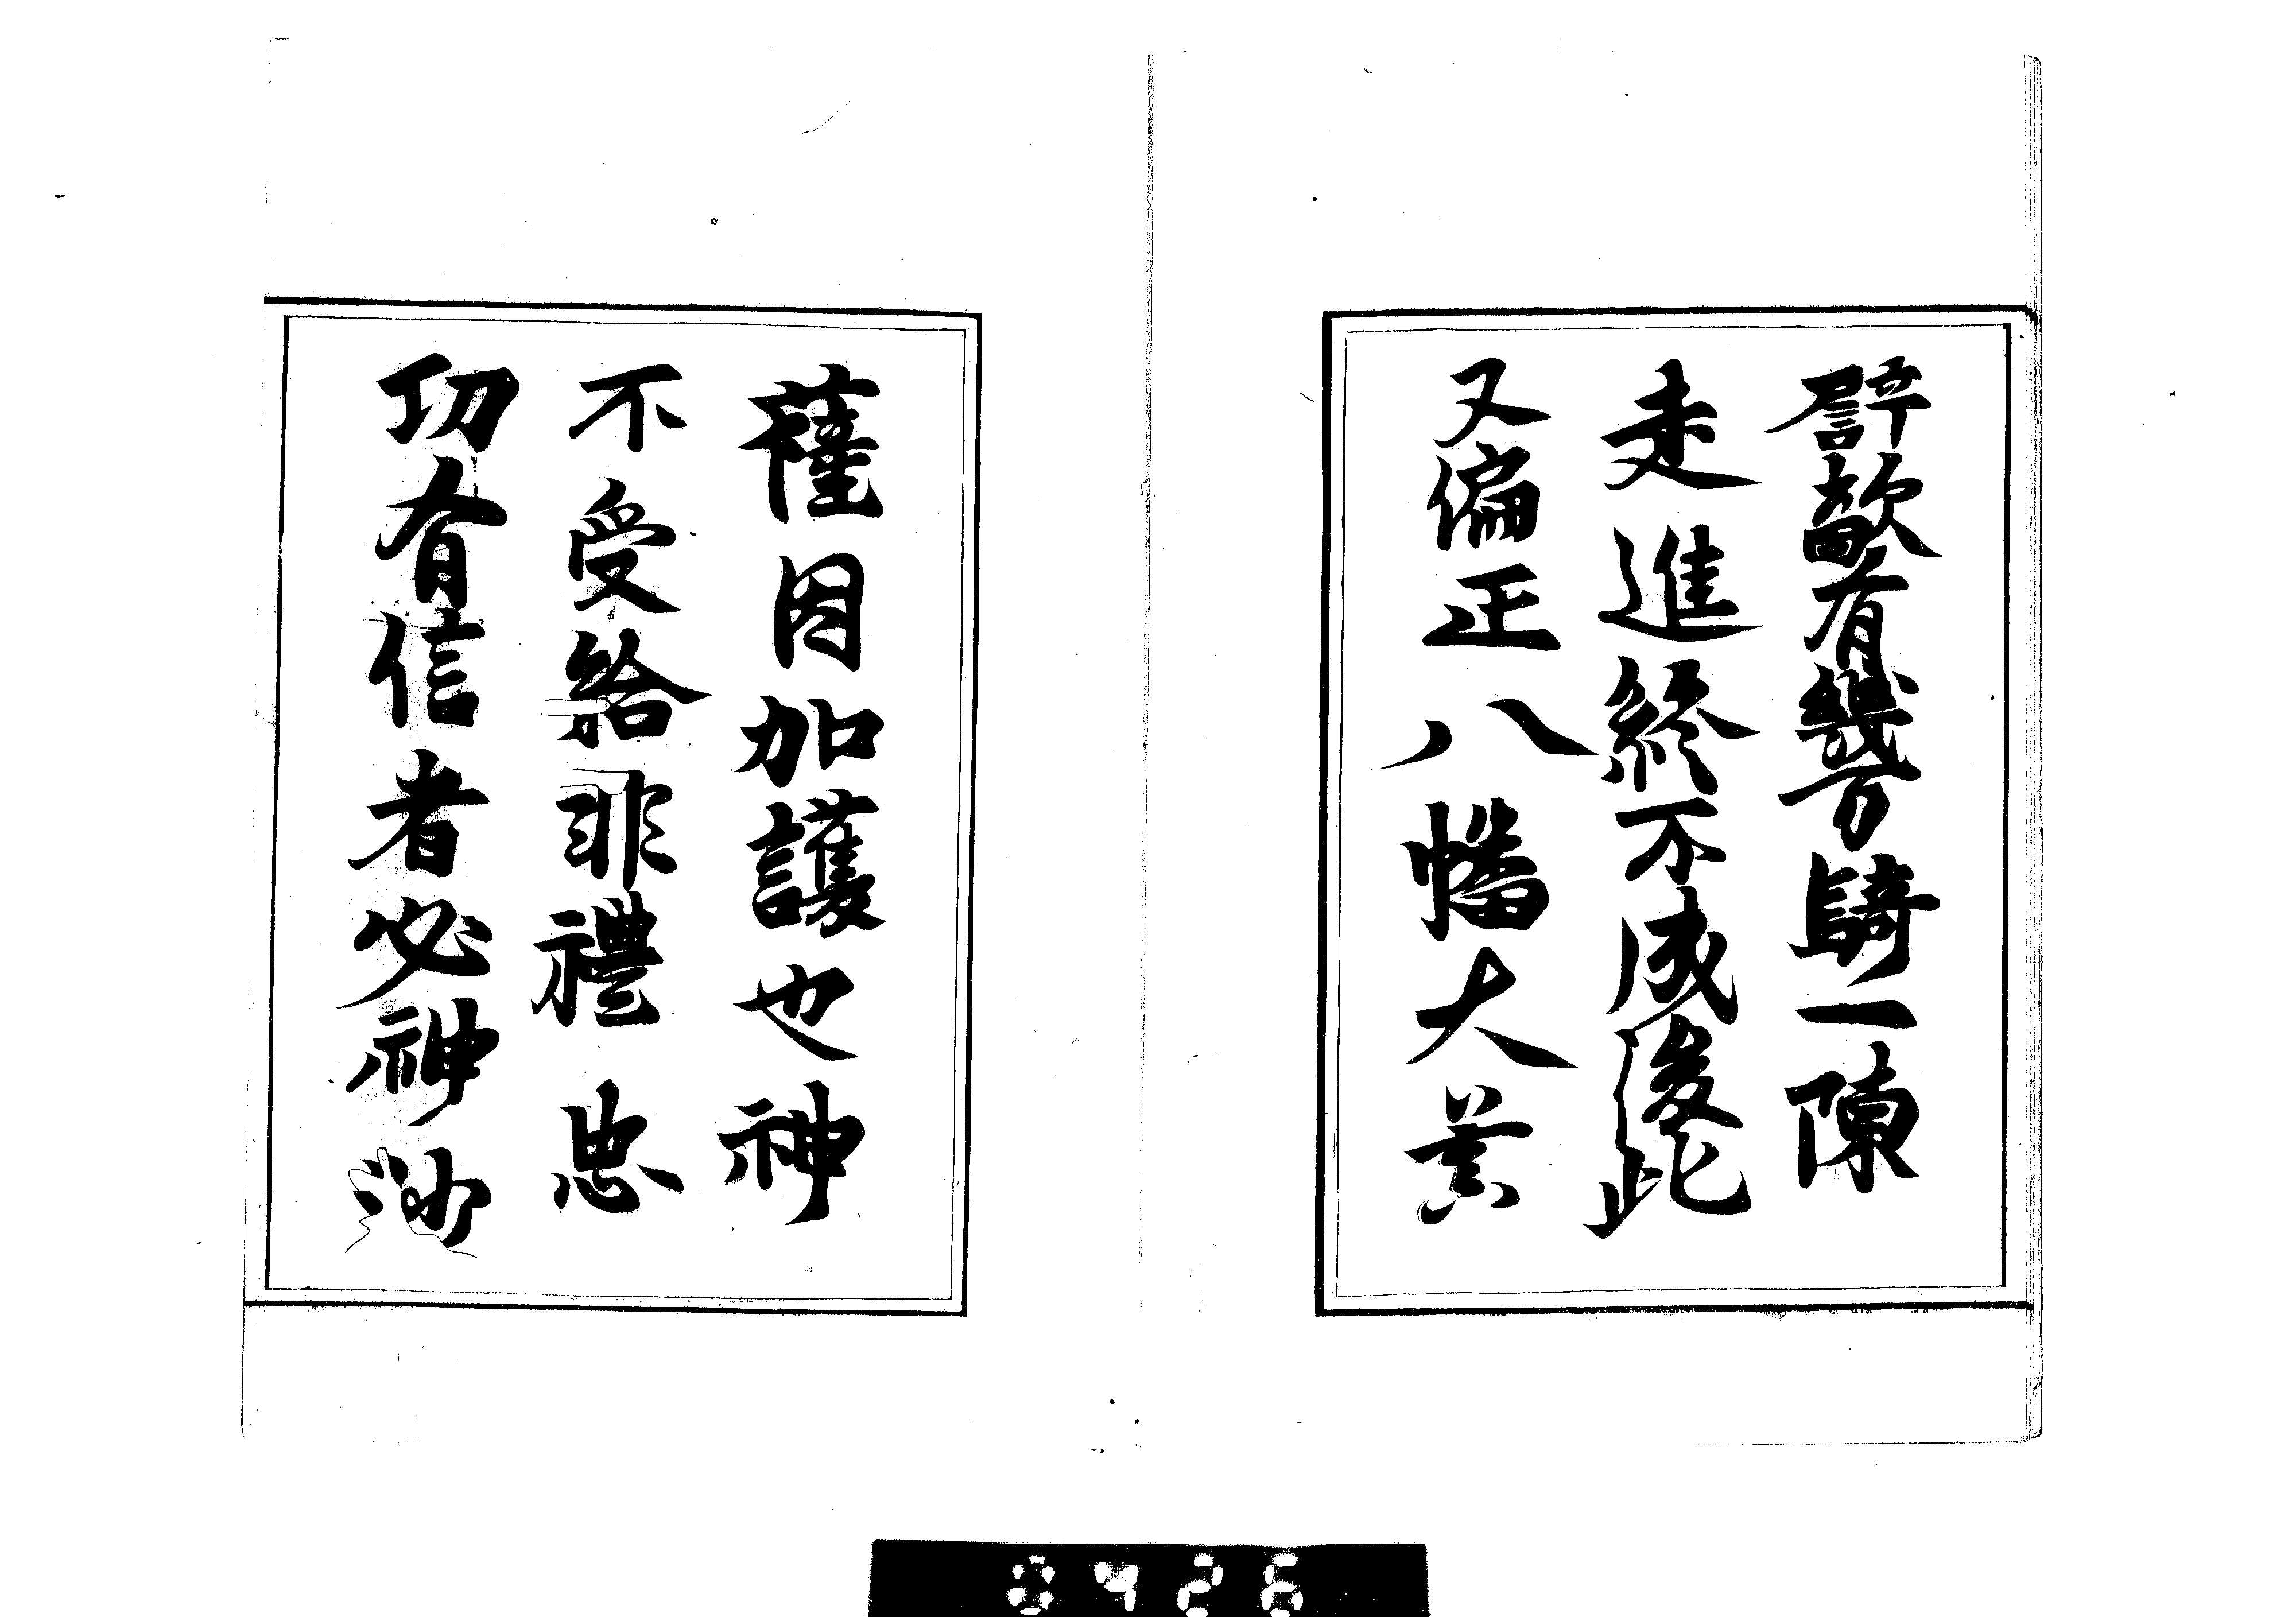 譬敵有幾万騎一陳
走進終不成後此
又偏正八幡大菩
薩因加護也神
不受給非禮忠
功有信者必神妙
8926